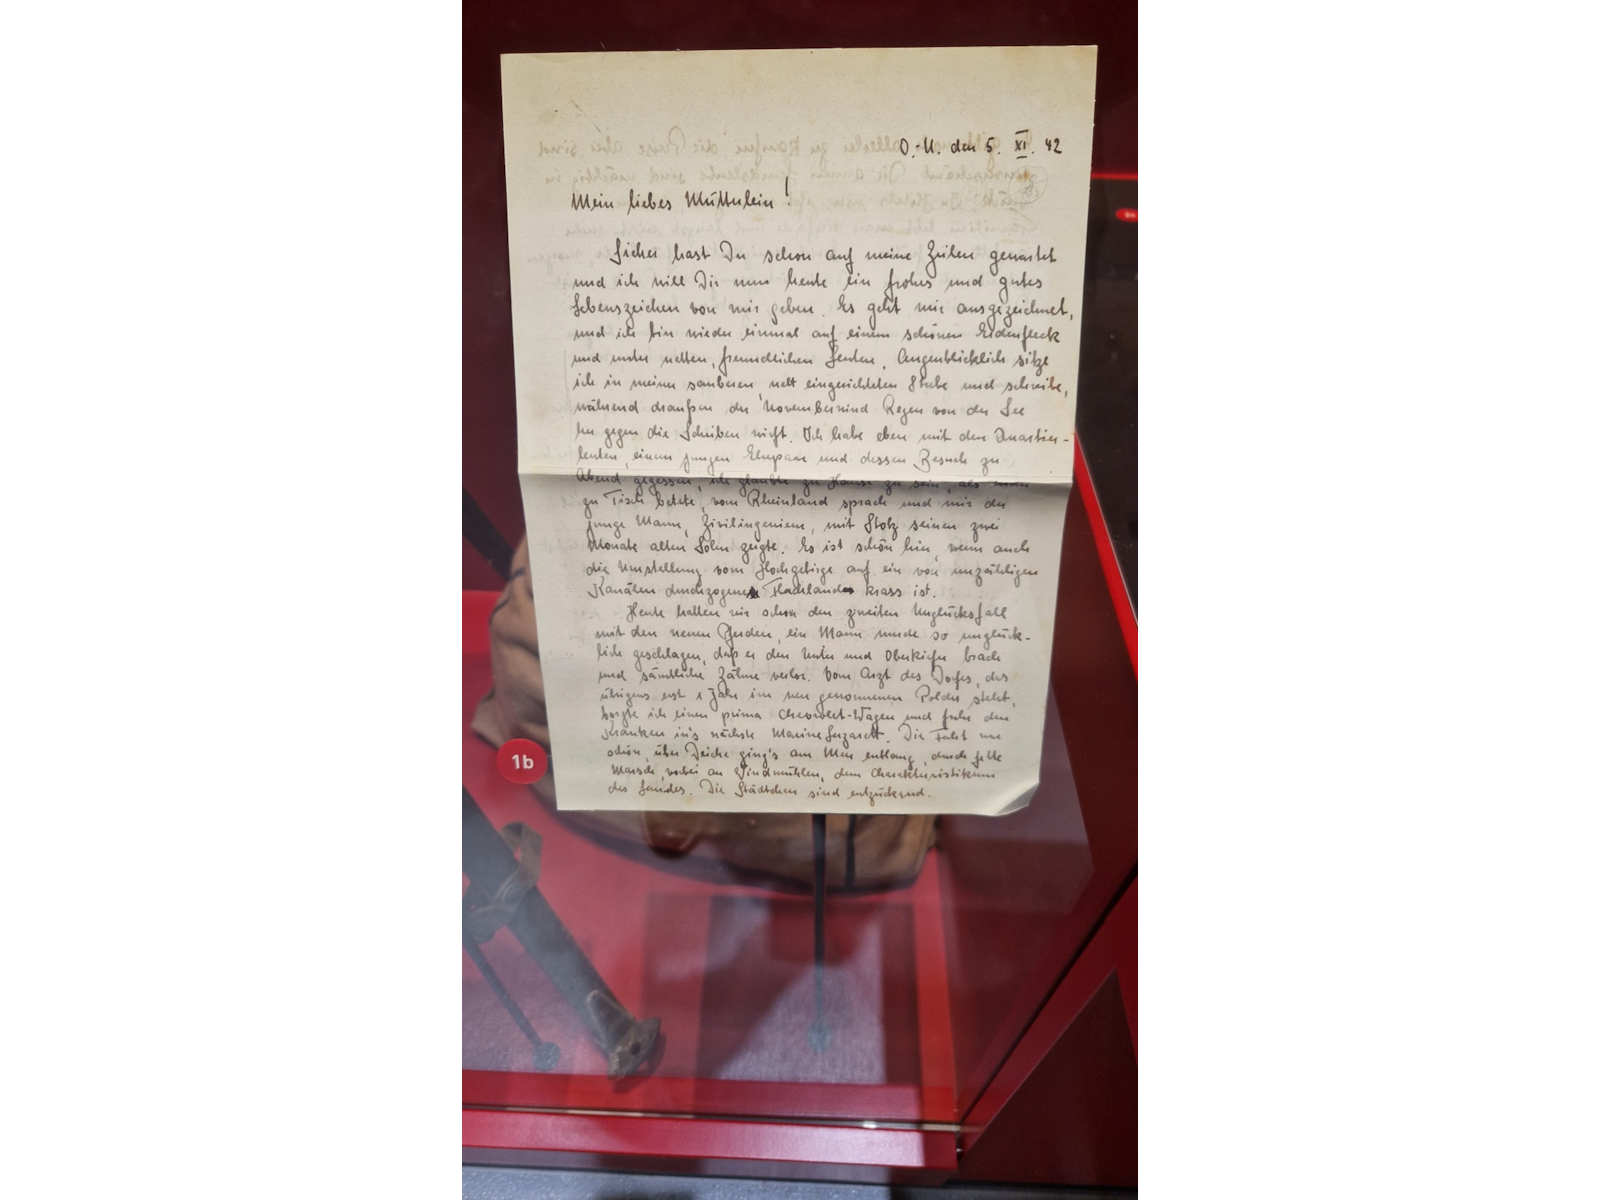 O.-U. den 5. XI. 42
Mein liebes Mütterlein!
Sicher hast Du schon auf meine Zeilen gewartet
und ich will Dir nun heute ein frohes und gutes
Lebenszeichen von mir geben. Es geht mir ausgezeichnet,
und ich bin wieder einmal auf einem schönen Erdenfleck
und unter netten, freundlichen Leuten. Augenblicklich sitze
ich in meiner sauberen, nett eingerichteten Stube und schreibe,
während draußen der Novemberwind Regen von der See
her gegen die Scheiben wirft. Ich habe eben mit den Quartier-
leuten, einem jungen Ehepaar und dessen Besuch zu
Abend gegessen, ich glaubte zu Hause zu sein, als
zu Tisch betete, vom Rheinland sprach und mir der
junge Mann, Zivilingenieur, mit Stolz seinen zwei
Monate alten Sohn zeigte. Es ist schön hier, wenn auch
die Umstellung vom Hochgebirge auf ein von unzähligen
Kanälen durchzogenes Flachland krass ist.
Heute hatten wir schon den zweiten Unglücksfall
mit den neuen Pferden, ein Mann wurde so unglück-
lich geschlagen, daß er den Unter und Oberkiefer brach
und sämtliche Zähne verlor. Vom Arzt des Dorfes, das
übrigens erst 1 Jahr im neu gewonnenen Polder steht,
borgte ich einen prima Chevrolet-Wagen und fuhr den
Kranken in's nächste Marine Lazarett. Die Fahrt war
schön, über Deiche ging's am Meer entlang, durch fette
Marsch, vorbei an Windmühlen, dem Charakteristikum
des Landes. Die Städtchen sind entzückend.
1b